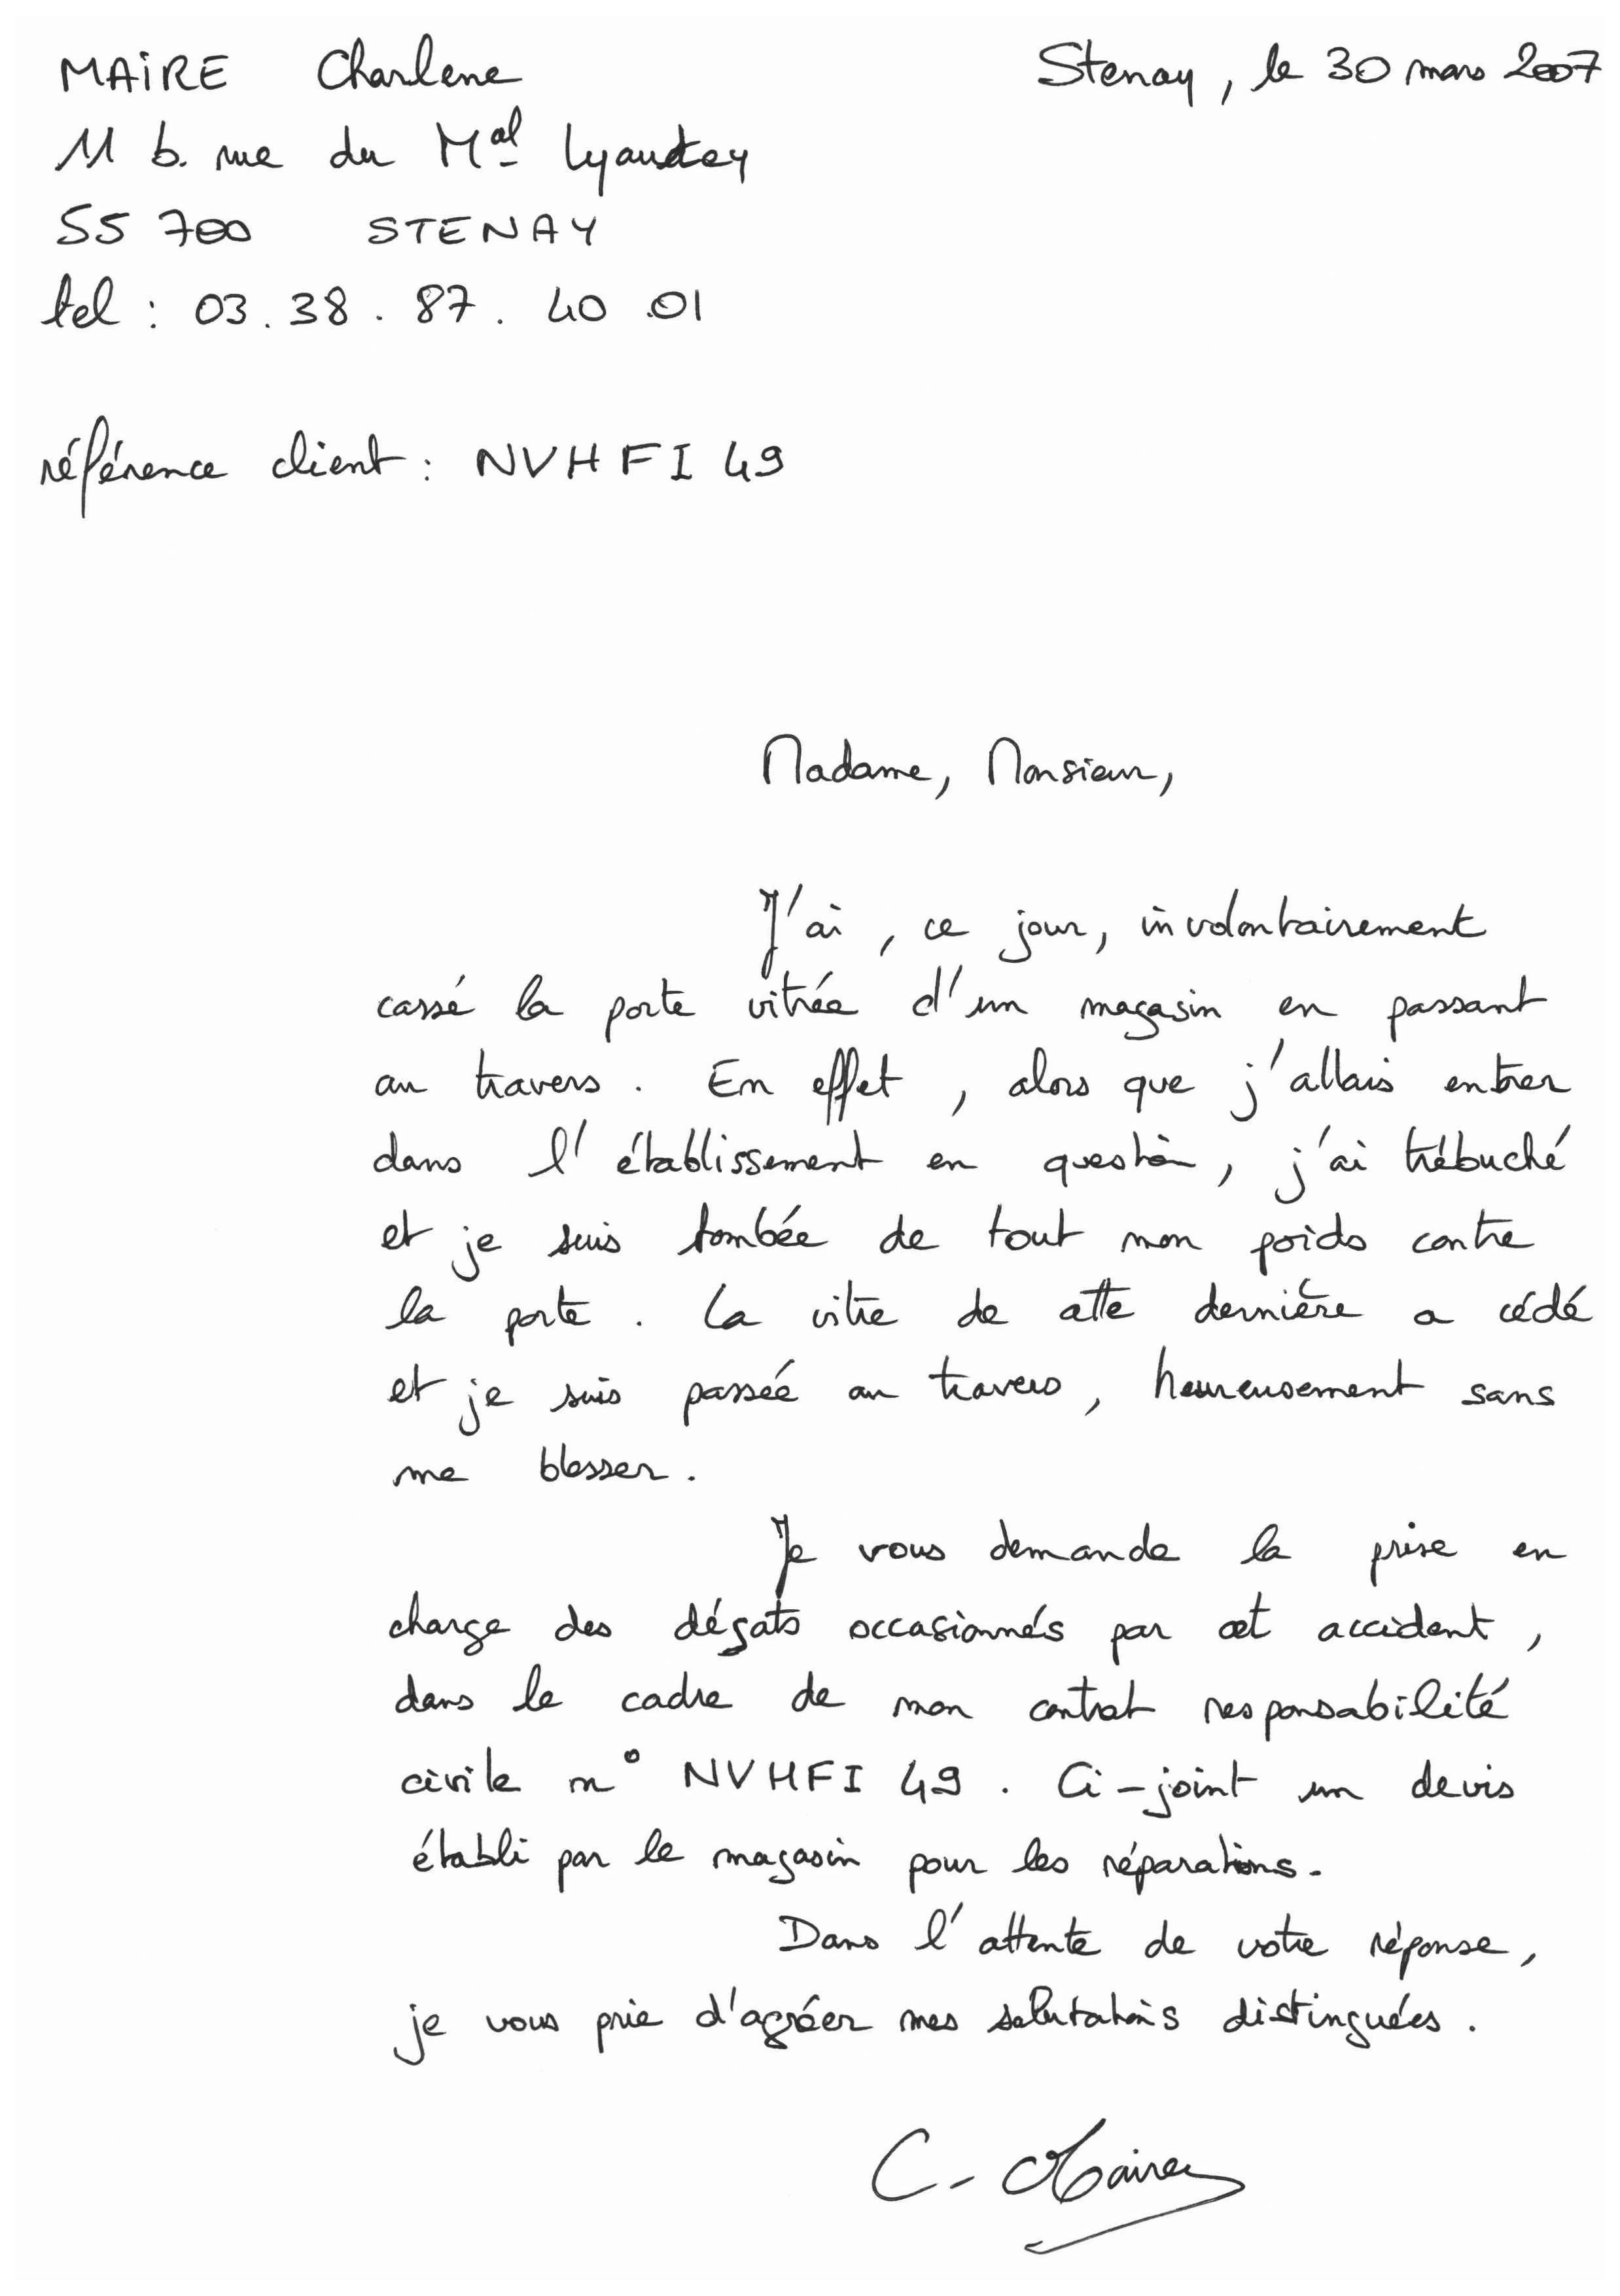 MAIRE Charlene
Stenay, le 30 mars 2007
11 b. rue du Mal Lyautey
55 700 STENAY
tel : 03.38.87.40.01
référence client : NVHFI 49
Madame, Monsieur,
J'ai, ce jour, involontairement
cassé la porte vitrée d'un magasin en passant
au travers. En effet, alors que j'allais entrer
dans l'établissement en question, j'ai trébuché
et je suis tombée de tout mon poids contre
la porte. La vitre de cette dernière a cédé
et je suis passée au travers, heureusement sans
me blesser.
Je vous demande la prise en
charge des dégats occasionnés par cet accident,
dans le cadre de mon contrat responsabilité
civile n° NVHFI 49. Ci-joint un devis
établi par le magasin pour les réparations.
Dans l'attente de votre réponse,
je vous prie d'agréer mes salutations distinguées.
C. Maire